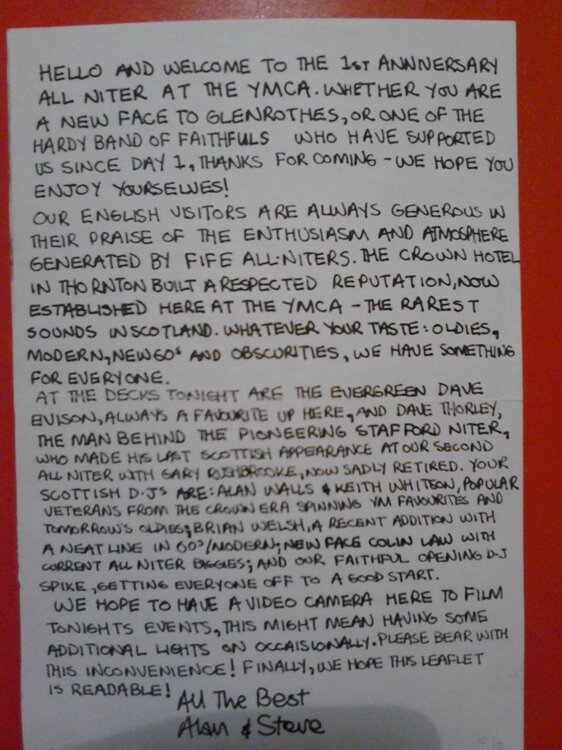 HELLO AND WELCOME TO THE 1ST ANNIVERSARY
ALL NITER AT THE YMCA. WHETHER YOU ARE
A NEW FACE TO GLENROTHES, OR ONE OF THE
HARDY BAND OF FAITHFULS WHO HAVE SUPPORTED
US SINCE DAY 1, THANKS FOR COMING - WE HOPE YOU
ENJOY YOURSELVES!
OUR ENGLISH VISITORS ARE ALWAYS GENEROUS IN
THEIR PRAISE OF THE ENTHUSIASM AND ATMOSPHERE
GENERATED BY FIFE ALL-NITERS. THE CROWN HOTEL
IN THORNTON BUILT A RESPECTED REPUTATION, NOW
ESTABLISHED HERE AT THE YMCA - THE RAREST
SOUNDS IN SCOTLAND. WHATEVER YOUR TASTE: OLDIES,
MODERN, NEW 60s AND OBSCURITIES, WE HAVE SOMETHING
FOR EVERYONE.
AT THE DECKS TONIGHT ARE THE EVERGREEN DAVE
EVISON, ALWAYS A FAVOURITE UP HERE, AND DAVE THORLEY,
THE MAN BEHIND THE PIONEERING STAFFORD NITER,
WHO MADE HIS LAST SCOTTISH APPEARANCE AT OUR SECOND
ALL NITER WITH GARY RUSHBROOKE, NOW SADLY RETIRED. YOUR
SCOTTISH D.J'S ARE: ALAN WALLS & KEITH WHITSON, POPULAR
VETERANS FROM THE CROWN ERA SPINNING YM FAVOURITES AND
TOMORROW'S OLDIES; BRIAN WELSH, A RECENT ADDITION WITH
A NEAT LINE IN 60s/MODERN; NEW FACE COLIN LAW WITH
CURRENT ALL NITER BIGGIES; AND OUR FAITHFUL OPENING D-J
SPIKE, GETTING EVERYONE OFF TO A GOOD START.
WE HOPE TO HAVE A VIDEO CAMERA HERE TO FILM
TONIGHTS EVENTS, THIS MIGHT MEAN HAVING SOME
ADDITIONAL LIGHTS ON OCCAISIONALLY. PLEASE BEAR WITH
THIS INCONVENIENCE! FINALLY, WE HOPE THIS LEAFLET
IS READABLE!
All The Best
Alan & Steve